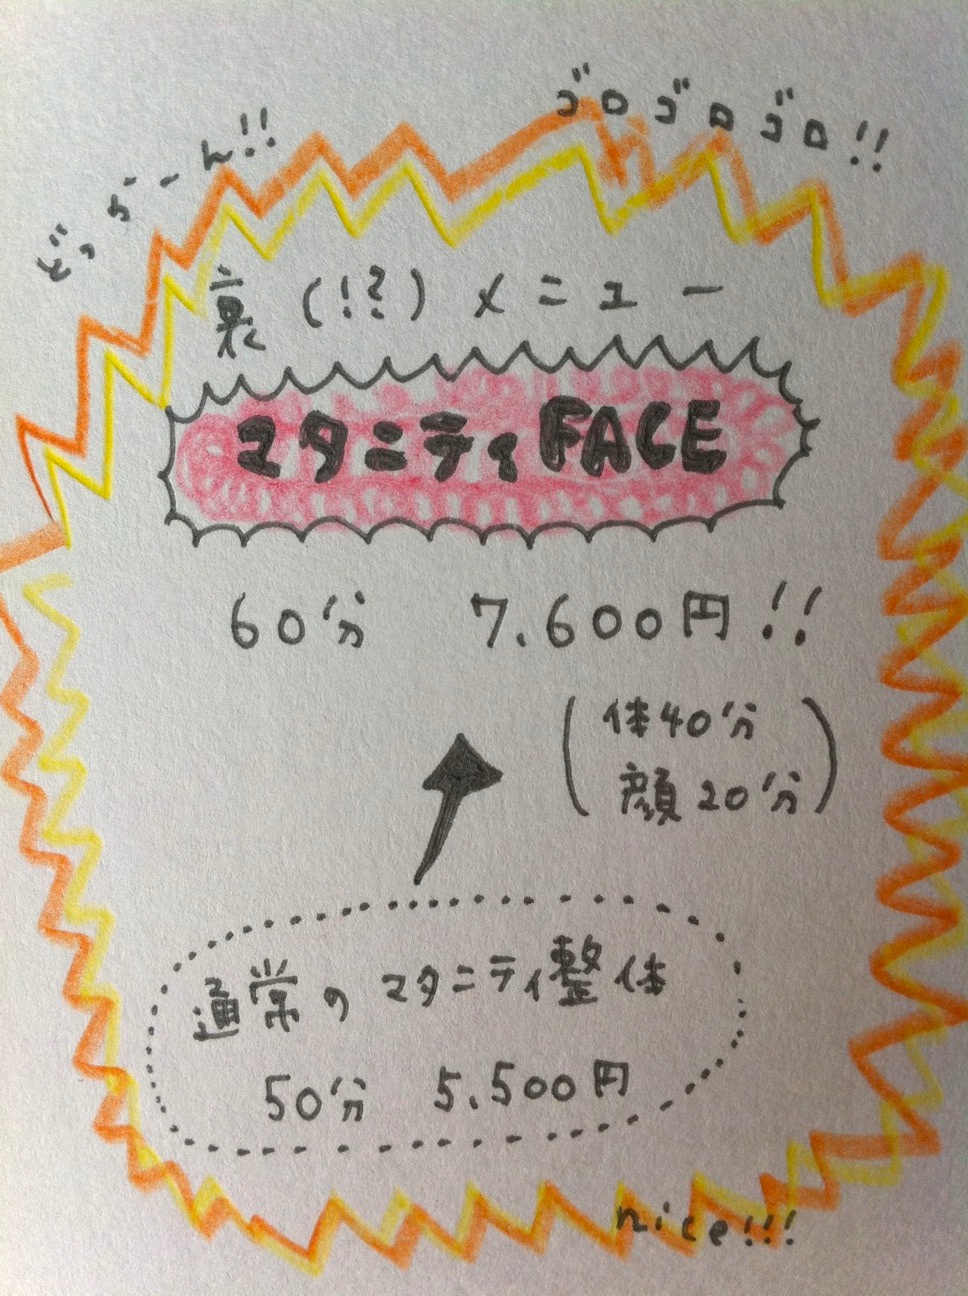 どっかーん!!
ゴロゴロゴロ!!
裏(!?)メニュー
マタニティFACE
60分 7.600円!!
(体40分
顔20分)
通常のマタニティ整体
50分 5.500円
nice!!!